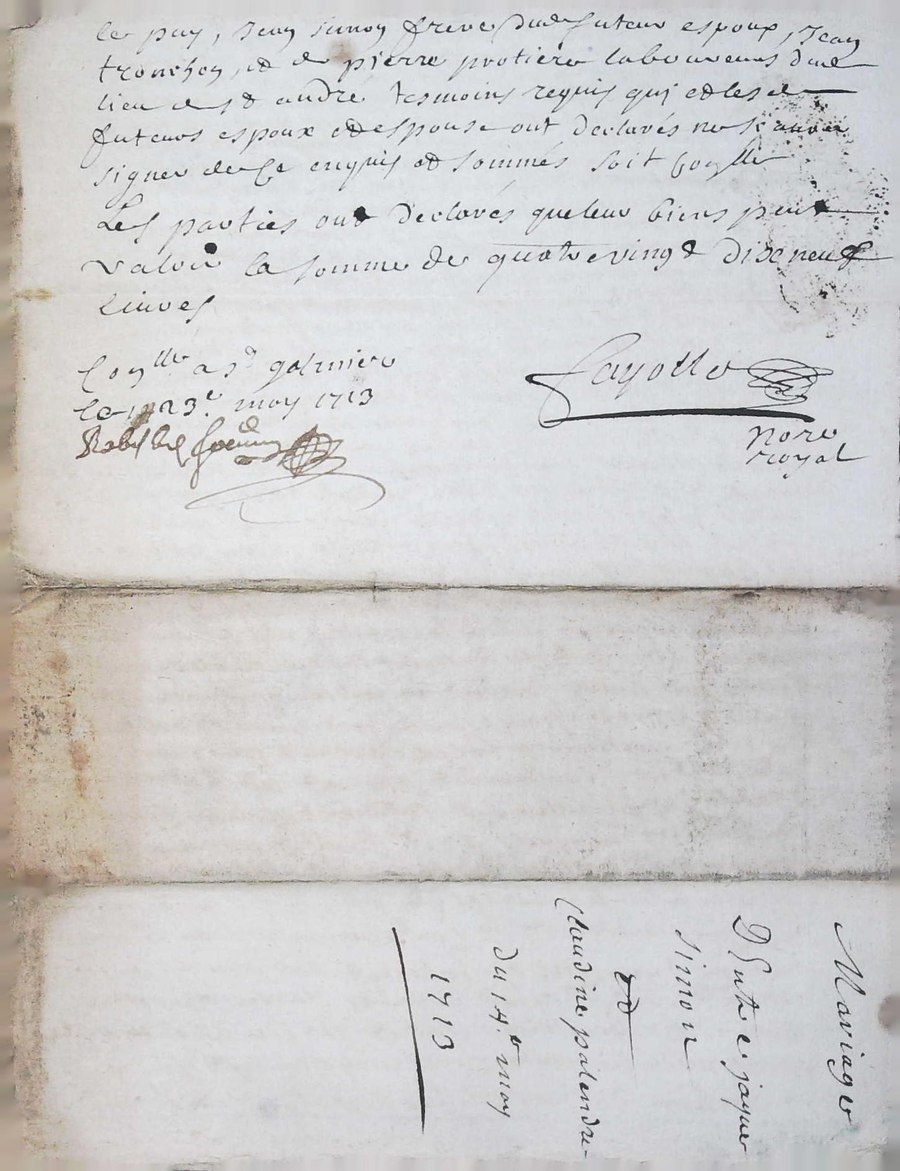 le puy, Jean simon frere dud futeur espoux, Jean
tronchon, et de pierre protiere laboureurs dud
lieu de st andre tesmoins requis qui et lesd
futeurs espoux et espouse ont declarés ne scavoir
signer de ce enquis et sommés soit Conlle
Les parties ont declarés que leur biens peut
valoir la somme de quatrevingt dixneuf
Liuves
Conlle a st galmier
le 23e may 1713
Fayolle
nore
royal
Mariage
D Entre jaque
simon
et
Claudine palendre
du 14e may
1713